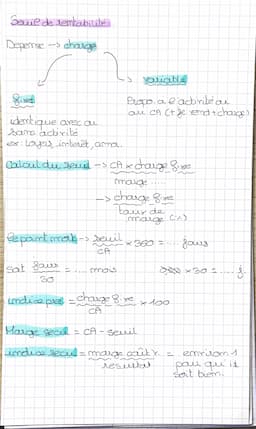 Seuil de rentabilité
Depense → charge
fixes
variable
identique avec ou
sans activité
ex: loyer, interêt, amo.
Propo. a l'activité ou
au CA (+ je vend + charge)
Calcul du seuil → CA x charge fixe
marge ....
→ charge fixe
taux de
marge (%)
Le point mort → seuil x 360 = .... jours
CA
soit jours = .... mois
30
x 30 = .... j.
indice = charge fixe x 100
CA
Marge secu = CA - seuil
indice secu = marge coût v. = environ 1
resultat
pour qu'il
soit bien.